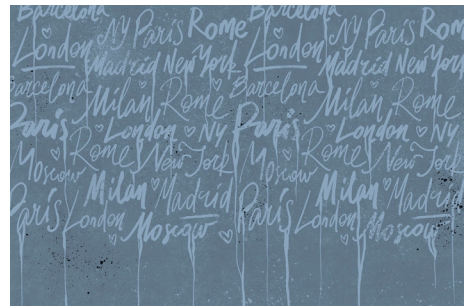 Barcelona Barcelona
NY Paris Rome NY Paris Rome
London London
Madrid New York Madrid New York
Barcelona Milan Rome Barcelona Milan Rome
Paris London NY Paris London NY
Moscow Rome New York Moscow Rome New York
Milan Madrid Milan Madrid
Paris London Paris London
Moscow Moscow